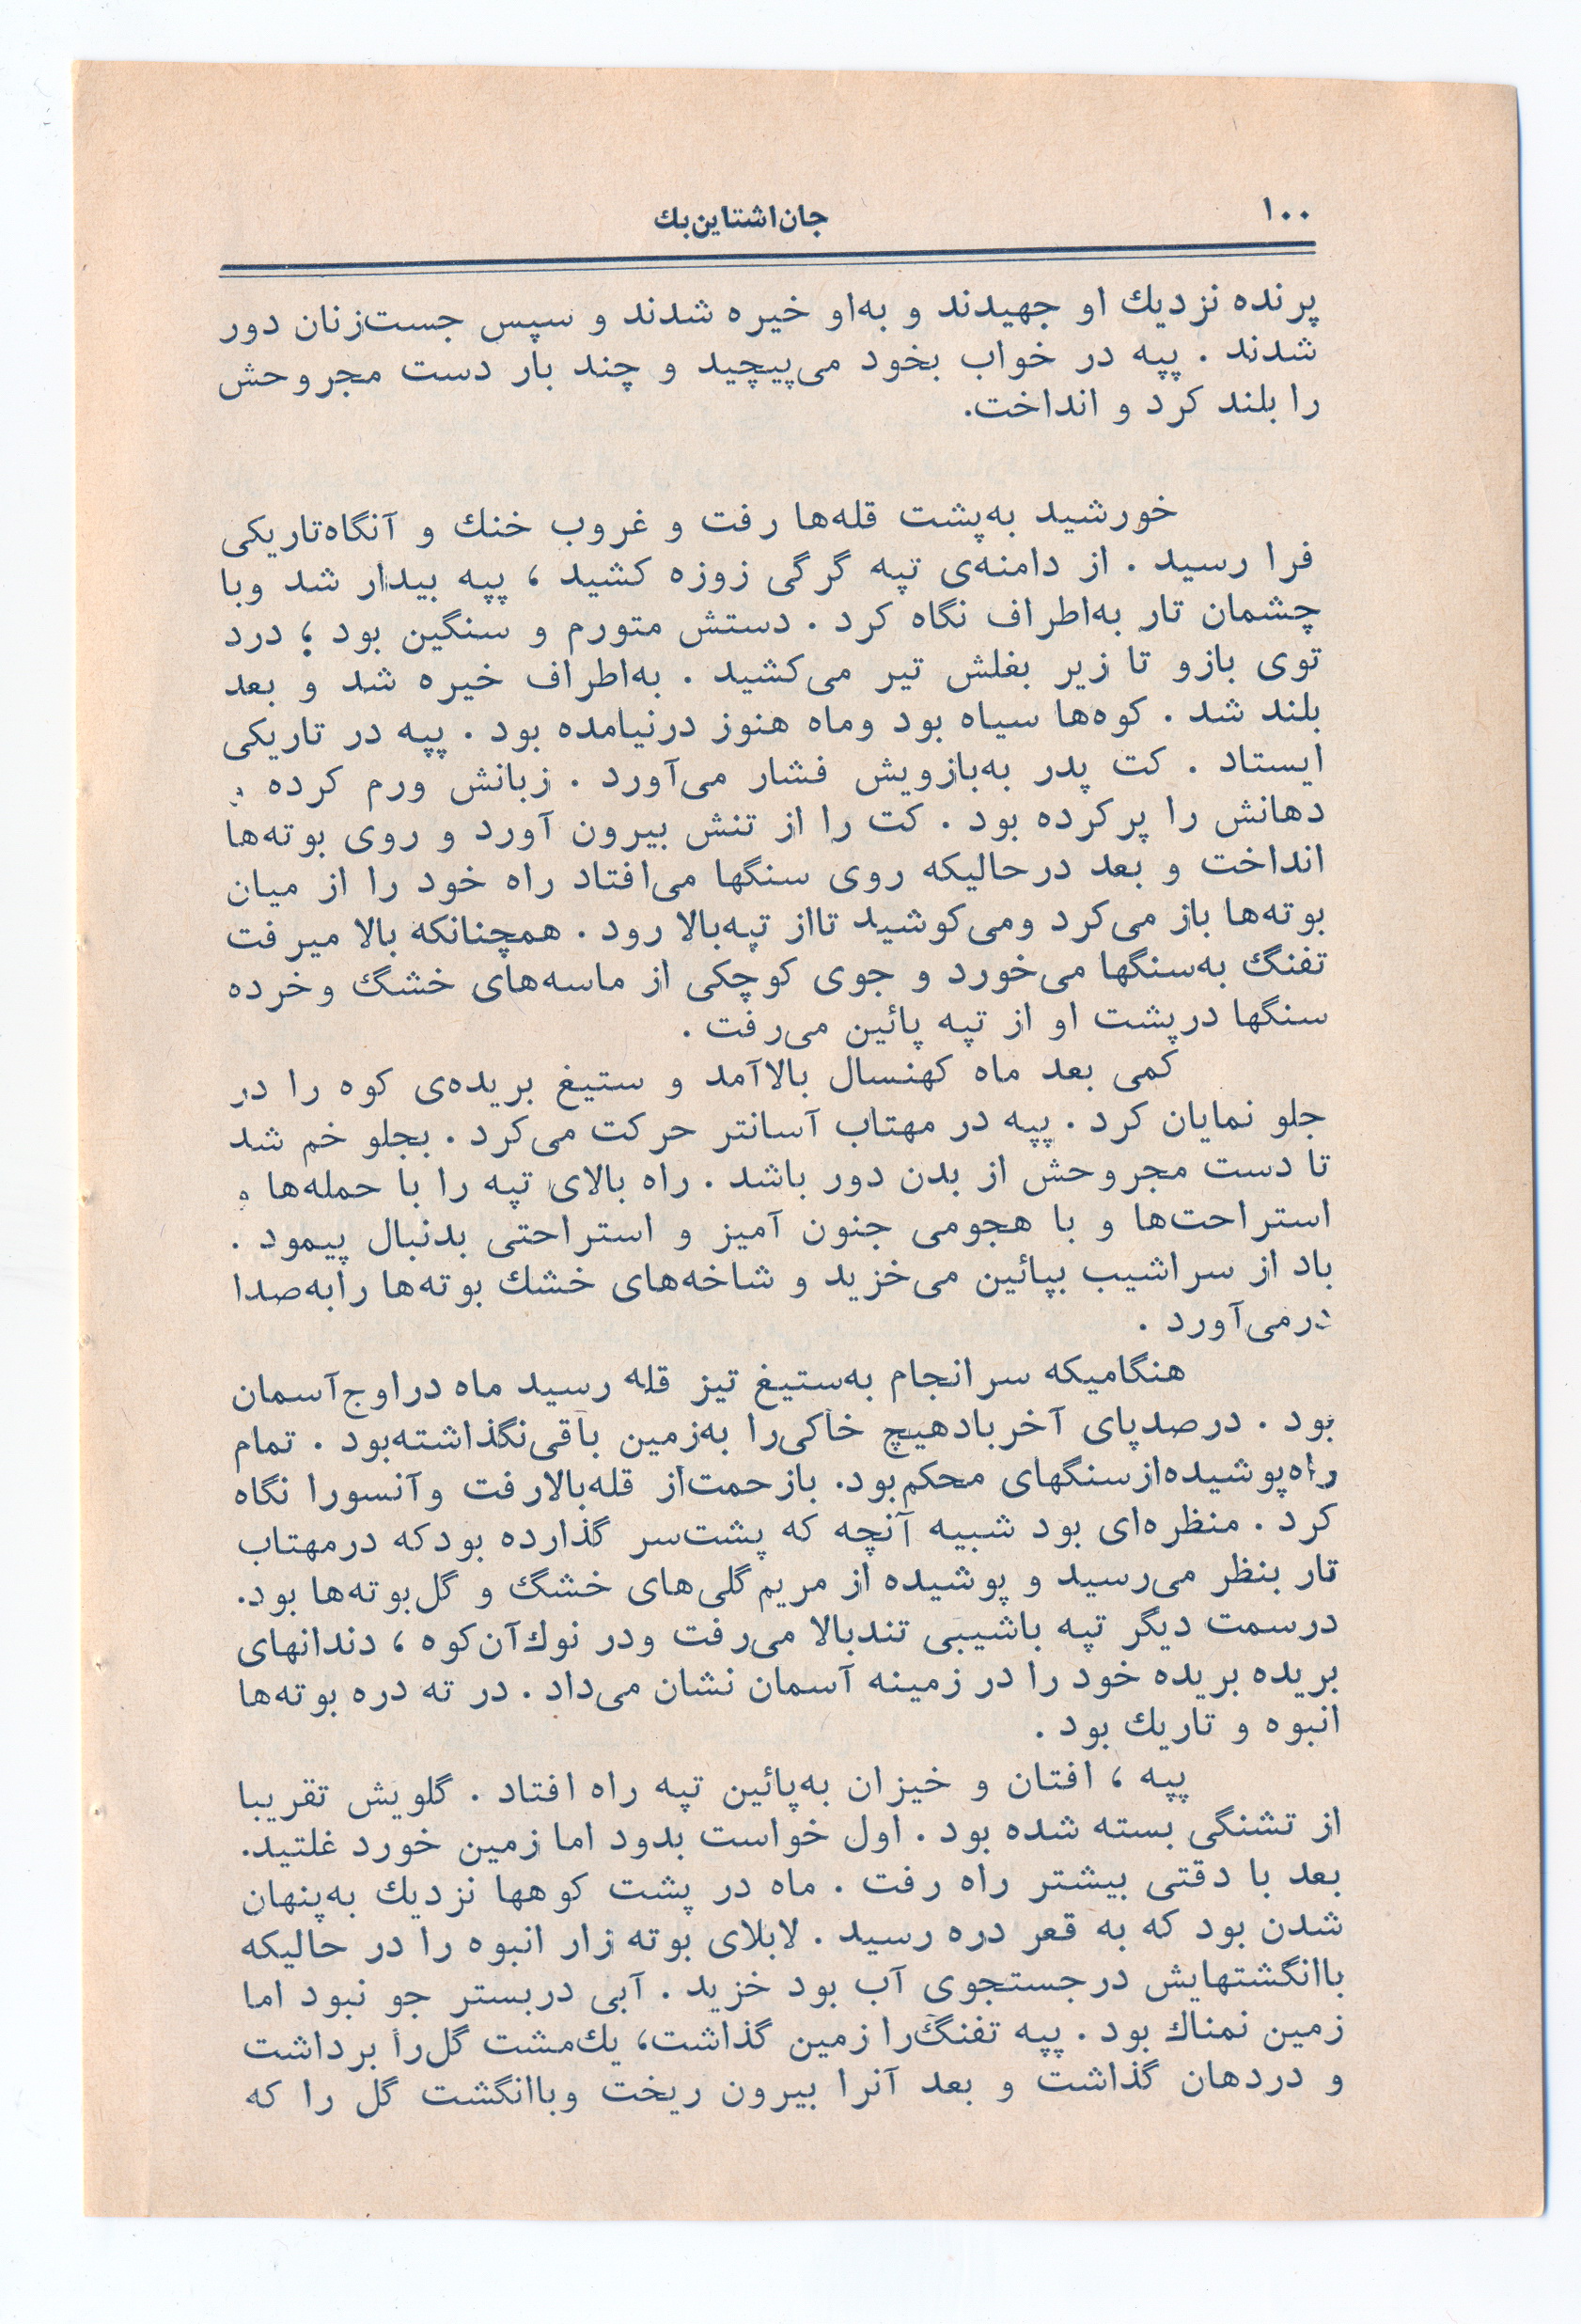 ۱۰۰
جان‌اشتاین‌بك
پرنده نزدیك او جهیدند و به‌او خیره شدند و سپس جست‌زنان دور
شدند . پپه در خواب بخود می‌پیچید و چند بار دست مجروحش
را بلند کرد و انداخت.
خورشید به‌پشت قله‌ها رفت و غروب خنك و آنگاه‌تاریکی
فرا رسید . از دامنه‌ی تپه گرگی زوزه کشید ، پپه بیدار شد وبا
چشمان تار به‌اطراف نگاه کرد . دستش متورم و سنگین بود ؛ درد
توی بازو تا زیر بغلش تیر می‌کشید . به‌اطراف خیره شد و بعد
بلند شد . کوه‌ها سیاه بود وماه هنوز درنیامده بود . پپه در تاریکی
ایستاد . کت پدر به‌بازویش فشار می‌آورد . زبانش ورم کرده و
دهانش را پرکرده بود . کت را از تنش بیرون آورد و روی بوته‌ها
انداخت و بعد درحالیکه روی سنگها می‌افتاد راه خود را از میان
بوته‌ها باز می‌کرد ومی‌کوشید تااز تپه‌بالا رود . همچنانکه بالا میرفت
تفنگ به‌سنگها می‌خورد و جوی کوچکی از ماسه‌های خشگ وخرده
سنگها درپشت او از تپه پائین می‌رفت .
کمی بعد ماه کهنسال بالاآمد و ستیغ بریده‌ی کوه را در
جلو نمایان کرد . پپه در مهتاب آسانتر حرکت می‌کرد . بجلو خم شد
تا دست مجروحش از بدن دور باشد . راه بالای تپه را با حمله‌ها و
استراحت‌ها و با هجومی جنون آمیز و استراحتی بدنبال پیمود .
باد از سراشیب بپائین می‌خزید و شاخه‌های خشك بوته‌ها رابه‌صدا
درمی‌آورد .
هنگامیکه سرانجام به‌ستیغ تیز قله رسید ماه دراوج‌آسمان
بود . درصدپای آخربادهیچ خاکی‌را به‌زمین باقی‌نگذاشته‌بود . تمام
راه‌پوشیده‌ازسنگهای محکم‌بود. بازحمت‌از قله‌بالارفت وآنسورا نگاه
کرد . منظره‌ای بود شبیه آنچه که پشت‌سر گذارده بودکه درمهتاب
تار بنظر می‌رسید و پوشیده از مریم‌گلی‌های خشگ و گل‌بوته‌ها بود.
درسمت دیگر تپه باشیبی تندبالا می‌رفت ودر نوك‌آن‌کوه ، دندانهای
بریده بریده خود را در زمینه آسمان نشان می‌داد . در ته دره بوته‌ها
انبوه و تاریك بود .
پپه ، افتان و خیزان به‌پائین تپه راه افتاد . گلویش تقریبا
از تشنگی بسته شده بود . اول خواست بدود اما زمین خورد غلتید.
بعد با دقتی بیشتر راه رفت . ماه در پشت کوهها نزدیك به‌پنهان
شدن بود که به قعر دره رسید . لابلای بوته زار انبوه را در حالیکه
باانگشتهایش درجستجوی آب بود خزید . آبی دربستر جو نبود اما
زمین نمناك بود . پپه تفنگ‌را زمین گذاشت، یك‌مشت گل‌را برداشت
و دردهان گذاشت و بعد آنرا بیرون ریخت وباانگشت گل را که